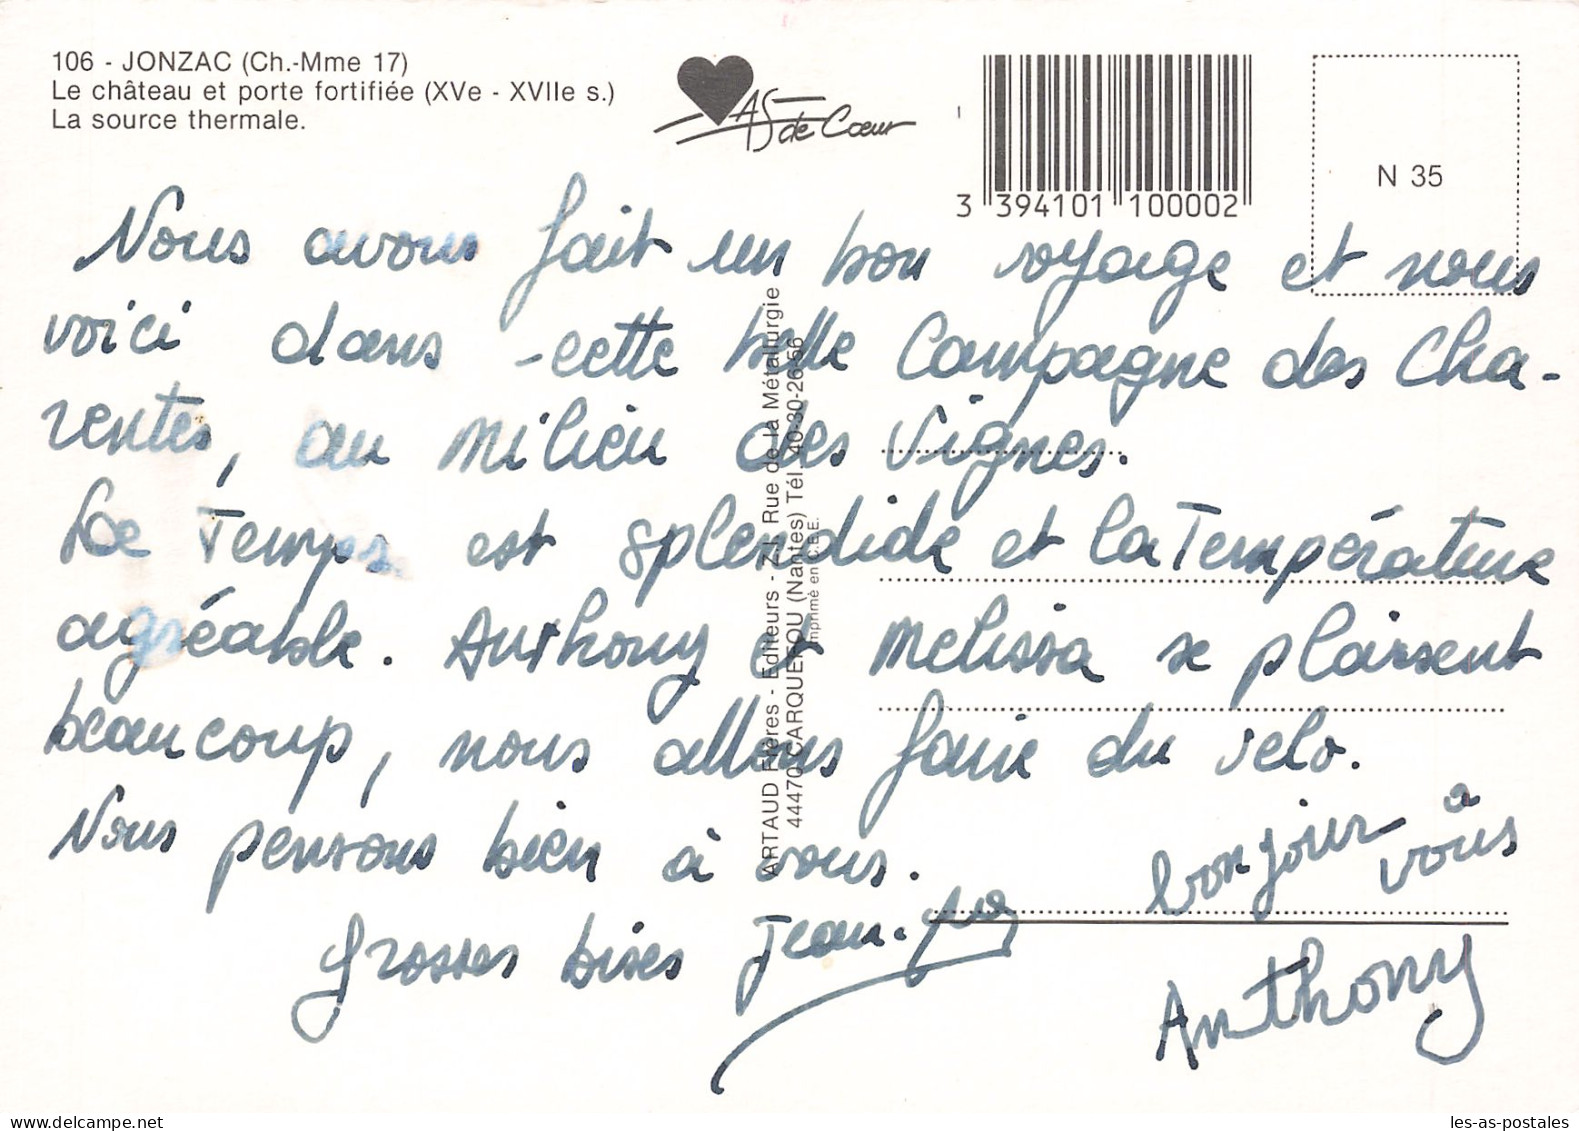 106 - JONZAC (Ch.-Mme 17)
Le château et porte fortifiée (XVe - XVIIe s.)
La source thermale.
AS de Cœur
3 394101 100002
N 35
Nous avons fait un bon voyage et nous
voici dans cette belle Campagne des Cha-
rentes, au milieu des vignes.
Le Temps est splendide et la Température
agréable. Anthony et Melissa se plaisent
beaucoup, nous allons faire du velo.
Nous pensons bien à vous.
Grosses bises Jean-
bonjour à vous
Anthony
ARTAUD Frères - Editeurs - Z.I. Rue de la Métallurgie
44470 CARQUEFOU (Nantes) Tél. 40-30-26-56
Imprimé en C.E.E.
les-as-postales